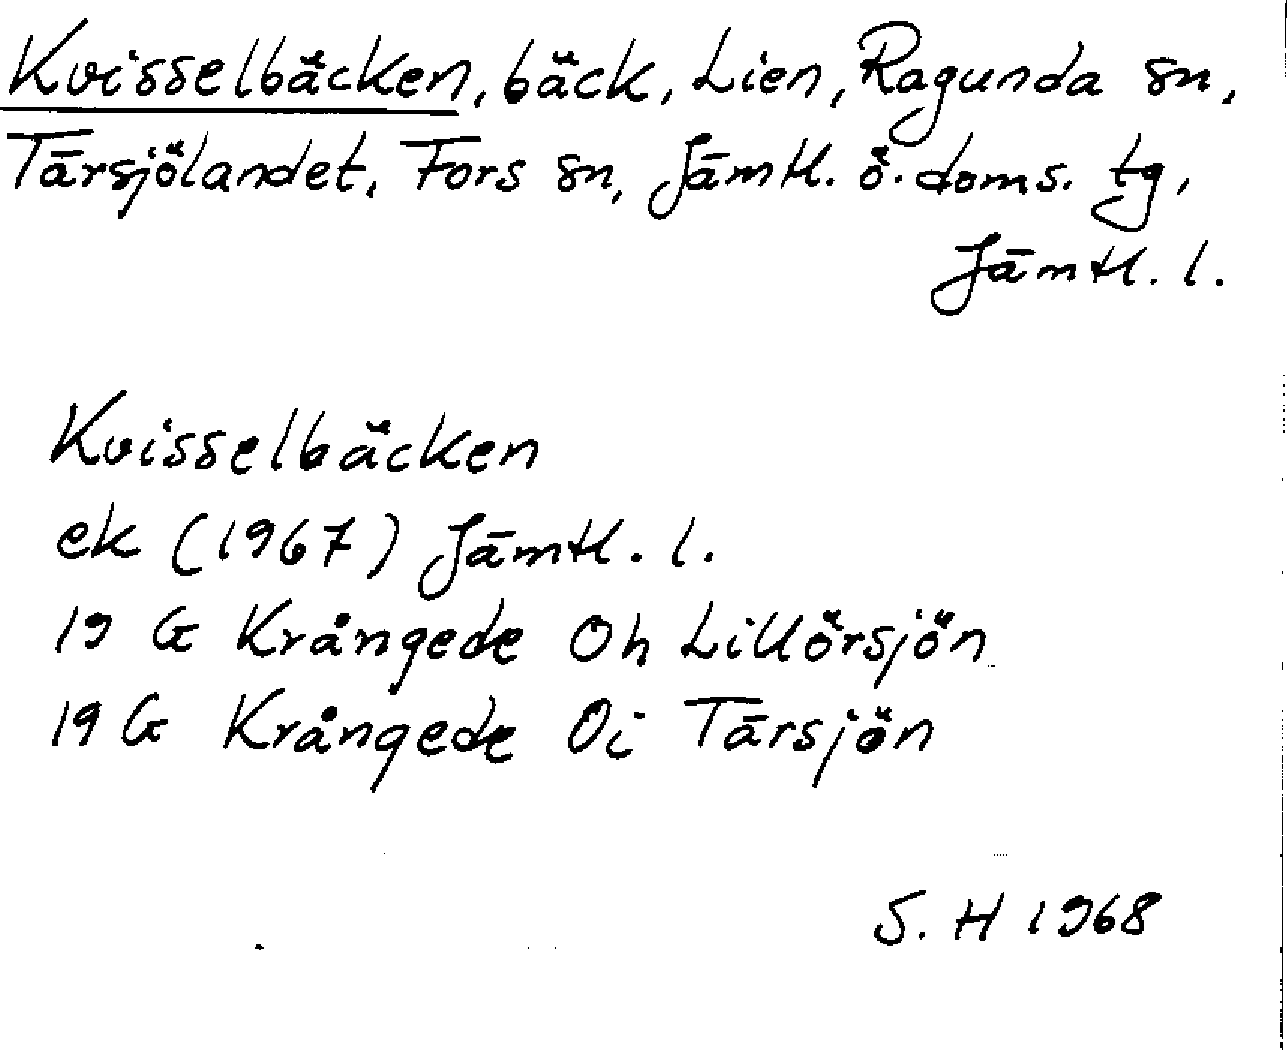 Kvisselbäcken, bäck, Lien, Ragunda sn,
Tärsjölandet, Fors sn, Jämtl. ö. doms. tg,
Jämtl. l.
Kvisselbäcken
ek (1967) Jämtl. l.
19 G Krångede Oh Lillörsjön
19 G Krångede Oi Tärsjön
S. H 1968